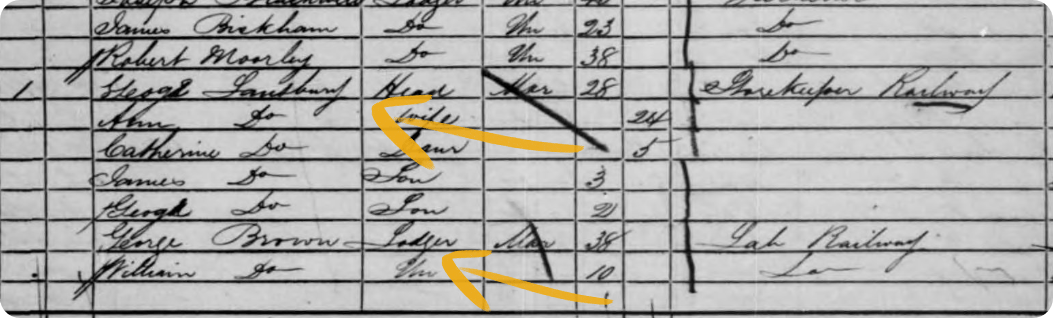 James Bickham Do Un 23 Do
Robert Moorley Do Un 38 Do
1 George Lansbury Head Mar 28 Storekeeper Railway
Ann Do Wife 24
Catherine Do Daur 5
James Do Son 3
George Do Son 2
George Brown Lodger Mar 38 Lab Railway
William Do Un 10 Do